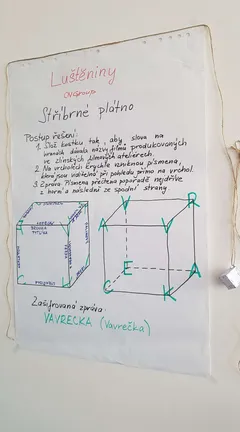 Luštěniny
Stříbrné plátno
Postup řešení:
1. Slož kostku tak, aby slova na
hranách dávala názvy filmů produkovaných
ve zlínských filmových ateliérech.
2. Na vrcholech krychle vzniknou písmena,
která jsou viditelná při pohledu přímo na vrchol.
3. Zpráva: Písmena přečtena popořadě nejdříve
z horní a následně ze spodní strany.
V
R
A
V
E
A
C
K
Zašifrovaná zpráva:
VAVRECKA (Vavrečka)